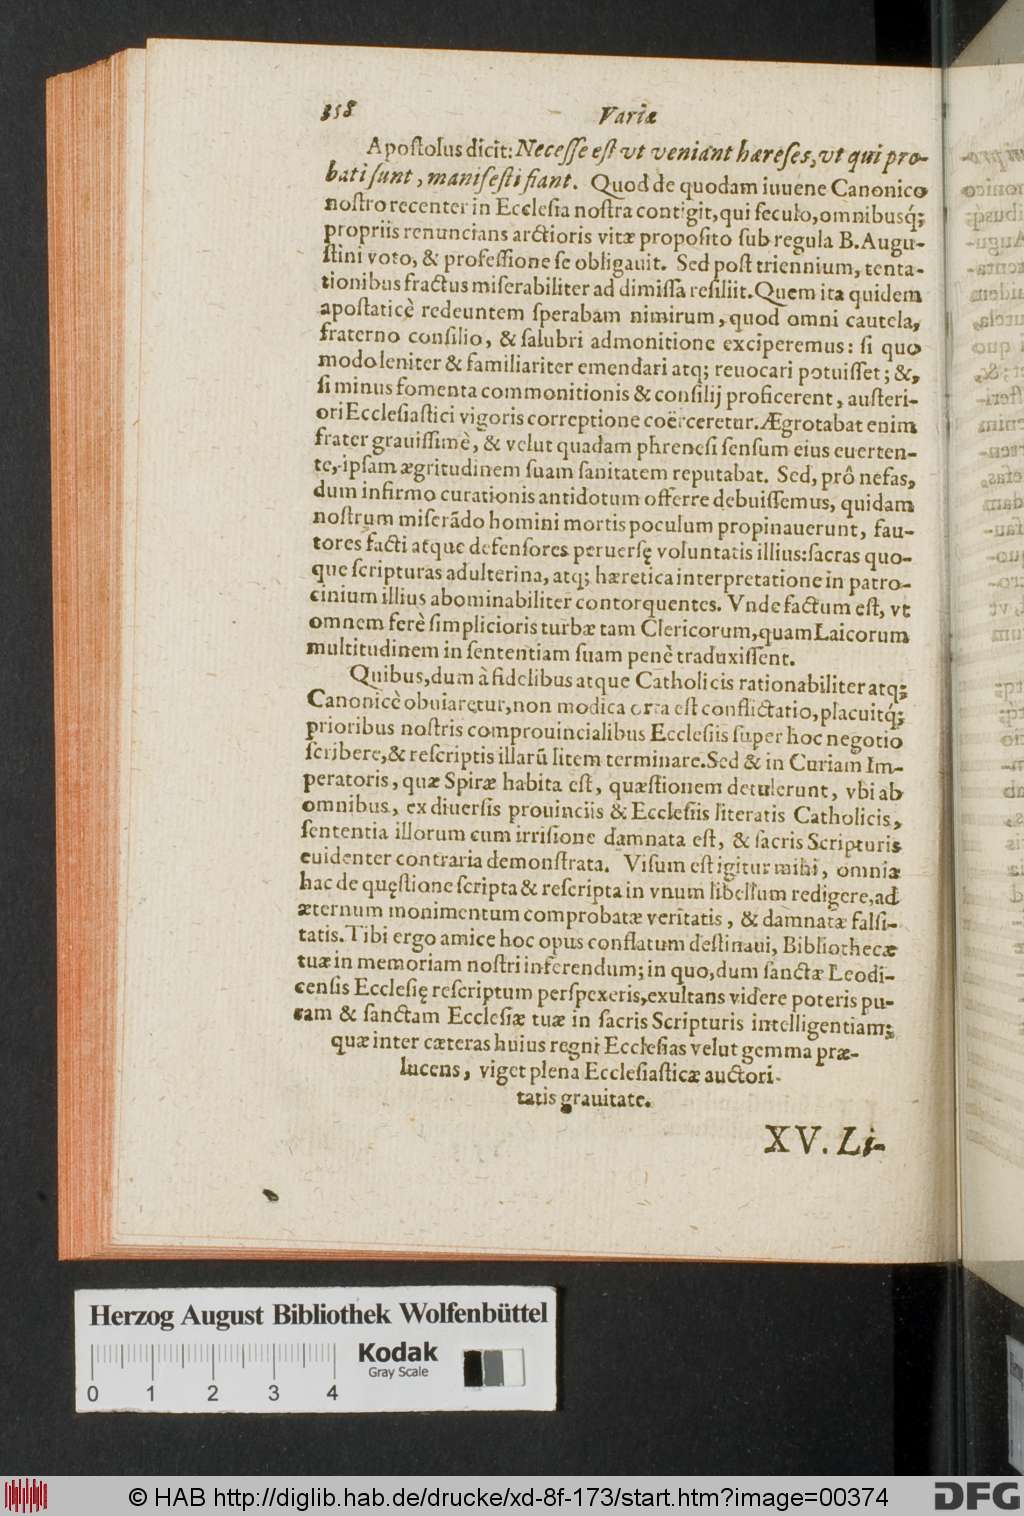 358 Variæ
Apostolus dicit: Necesse est vt veniant hæreses, vt qui pro-
bati sunt, manifesti fiant. Quod de quodam iuuene Canonico
nostro recenter in Ecclesia nostra contigit, qui seculo, omnibusq́;
propriis renuncians arctioris vitæ proposito sub regula B. Augu-
stini voto, & professione se obligauit. Sed post triennium, tenta-
tionibus fractus miserabiliter ad dimissa resiliit. Quem ita quidem
apostaticè redeuntem sperabam nimirum, quod omni cautela,
fraterno consilio, & salubri admonitione exciperemus: si quo
modo leniter & familiariter emendari atq; reuocari potuisset; &,
si minus fomenta commonitionis & consilij proficerent, austeri-
ori Ecclesiastici vigoris correptione coërceretur. Ægrotabat enim
frater grauissimè, & velut quadam phrenesi sensum eius euerten-
te, ipsam ægritudinem suam sanitatem reputabat. Sed, prô nefas,
dum infirmo curationis antidotum offerre debuissemus, quidam
nostrum miserãdo homini mortis poculum propinauerunt, fau-
tores facti atque defensores peruersę voluntatis illius: sacras quo-
que scripturas adulterina, atq; hæretica interpretatione in patro-
cinium illius abominabiliter contorquentes. Vnde factum est, vt
omnem ferè simplicioris turbæ tam Clericorum, quam Laicorum
multitudinem in sententiam suam penè traduxissent.
Quibus, dum à fidelibus atque Catholicis rationabiliter atq;
Canonicè obuiaretur, non modica orta est conflictatio, placuitq́;
prioribus nostris comprouincialibus Ecclesiis super hoc negotio
scribere, & rescriptis illarũ litem terminare. Sed & in Curiam Im-
peratoris, quæ Spiræ habita est, quæstionem detulerunt, vbi ab
omnibus, ex diuersis prouinciis & Ecclesiis literatis Catholicis,
sententia illorum cum irrisione damnata est, & sacris Scripturis
euidenter contraria demonstrata. Visum est igitur mihi, omnia
hac de quęstione scripta & rescripta in vnum libellum redigere, ad
æternum monimentum comprobatæ veritatis, & damnatæ falsi-
tatis. Tibi ergo amice hoc opus conflatum destinaui, Bibliothecæ
tuæ in memoriam nostri inferendum; in quo, dum sanctæ Leodi-
censis Ecclesię rescriptum perspexeris, exultans videre poteris pu-
ram & sanctam Ecclesiæ tuæ in sacris Scripturis intelligentiam;
quæ inter cæteras huius regni Ecclesias velut gemma præ-
lucens, viget plena Ecclesiasticæ auctori-
tatis grauitate.
XV. Li-
Herzog August Bibliothek Wolfenbüttel
Kodak
Gray Scale
0 1 2 3 4
© HAB http://diglib.hab.de/drucke/xd-8f-173/start.htm?image=00374
DFG